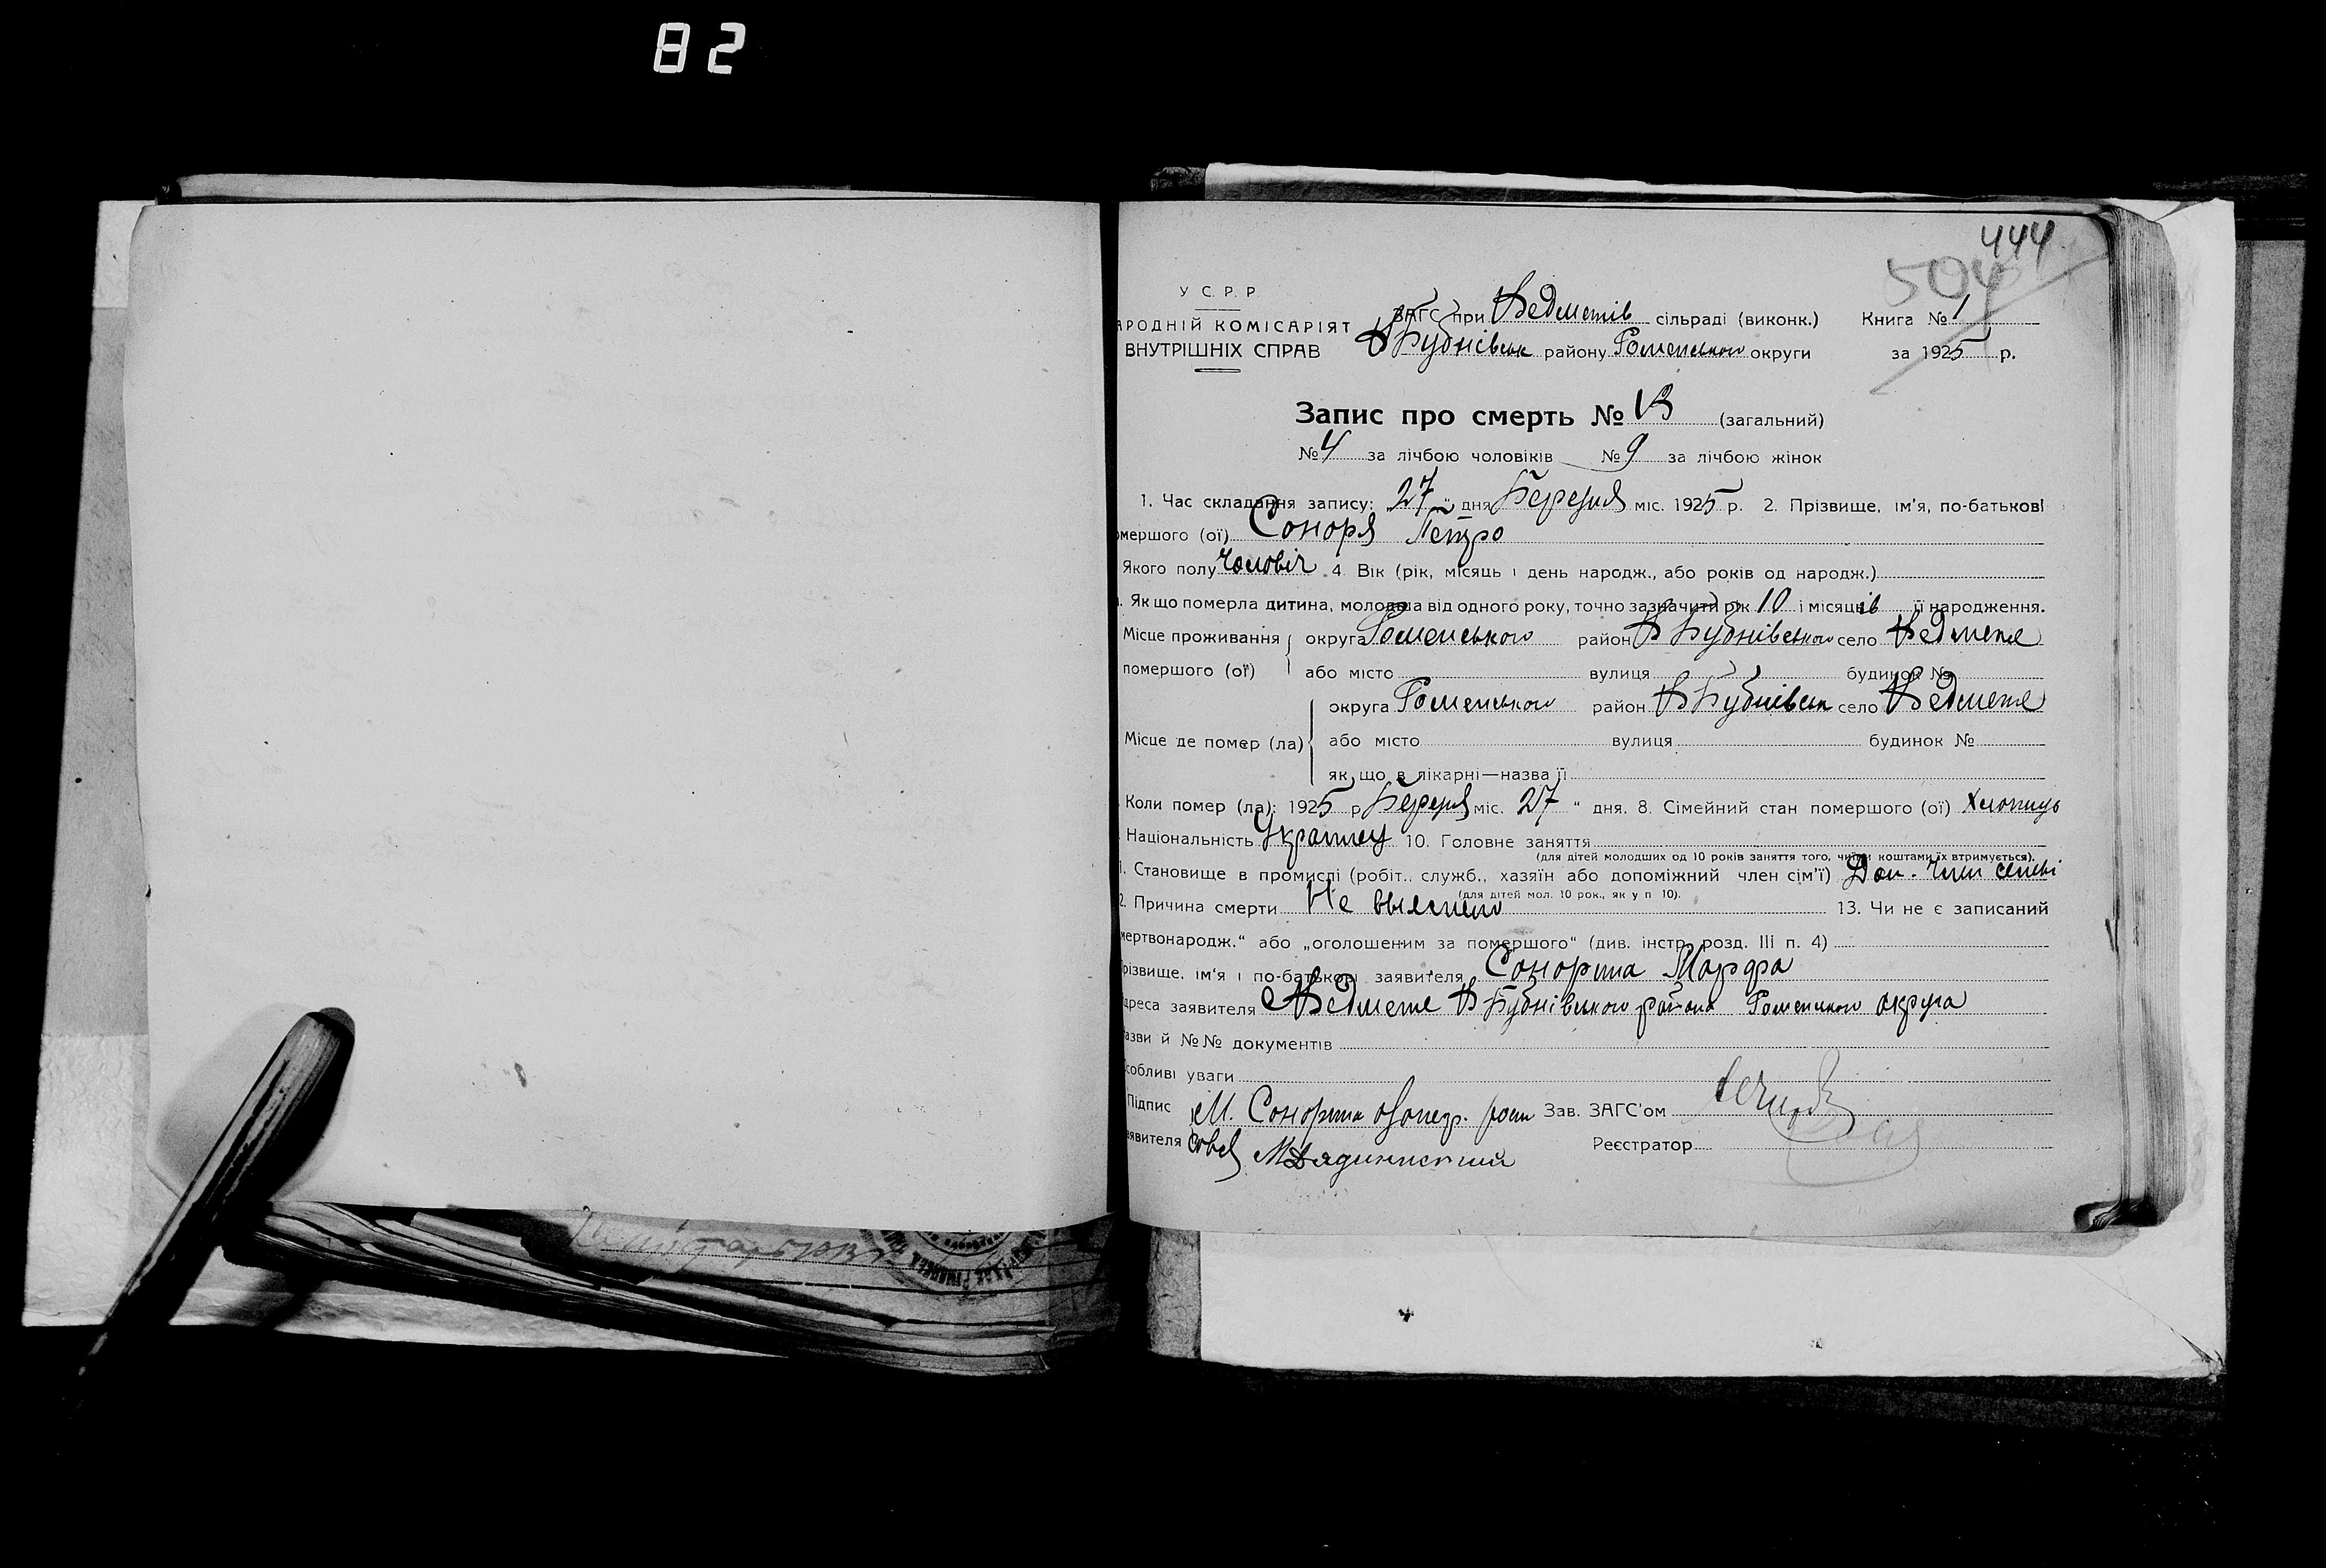 82
444
504
У С. Р. Р.
АРОДНІЙ КОМІСАРІЯТ
ВНУТРІШНІХ СПРАВ
ЗАГС при Ведметів сільраді (виконк.) Книга № 1
В Бубнівськ району Роменського округи за 1925 р.
Запис про смерть № 13 (загальний)
№ 4 за лічбою чоловіків № 9 за лічбою жінок
1. Час складання запису: „27“ дня Березня міс. 1925 р. 2. Прізвище, ім'я, по-батькові
омершого (ої) Соноря Петро
Якого полу Чоловіч 4. Вік (рік, місяць і день народж., або років од народж.)
. Як що померла дитина, молодша від одного року, точно зазначити рік 10 і місяців її народження.
Місце проживання округа Роменського район В Бубнівського село Ведмеже
помершого (ої) або місто вулиця будинок №
округа Роменського район В Бубнівськ село Ведмеже
Місце де помер (ла) або місто вулиця будинок №
як що в лікарні—назва її
Коли помер (ла): 1925 р Березня міс. 27 “ дня. 8. Сімейний стан помершого (ої) Хлопиць
Національність Украинец 10. Головне заняття
(для дітей молодших од 10 років заняття того, чиїми коштами їх втримується).
1. Становище в промислі (робіт., служб., хазяїн або допоміжний член сім'ї) Доп. член семьі
(для дітей мол. 10 рок., як у п 10).
2. Причина смерти Не выяснено 13. Чи не є записаний
мертвонародж.“ або „оголошеним за помершого“ (див. інстр. розд. III п. 4)
різвище, ім'я і по-батькові заявителя Сонорина Марфа
дреса заявителя с Ведмеже В Бубнівського района Роменського округа
азви й №№ документів
собливі уваги
Підпис М. Сонорина Зав. ЗАГС'ом
аявителя Реєстратор